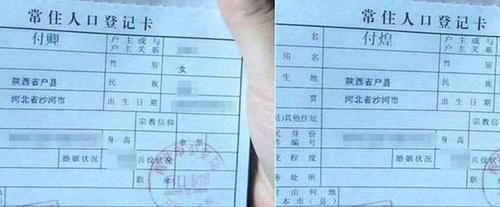 常住人口登记卡
付卿
户主或与
户主关系
性别
女
陕西省户县
民族
河北省沙河市
出生日期
宗教信仰
身高
婚姻状况
兵役状况
职业
常住人口登记卡
名
付煌
户主或与
户主关系
用名
性别
生地
陕西省户县
民族
贯
河北省沙河市
出生日期
县)其他住址
宗教信仰
民身份
件编号
身高
化程度
婚姻状况
兵役状况
务处所
职业
由何地
本市(县)